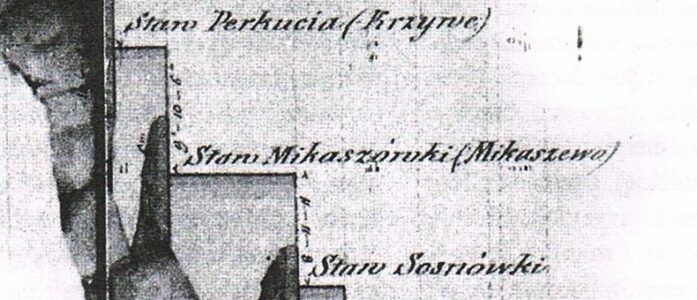 Staw Perkucia (Krzywe)
9'-10-6"
Staw Mikaszówki (Mikaszewo)
Staw Sosnówki